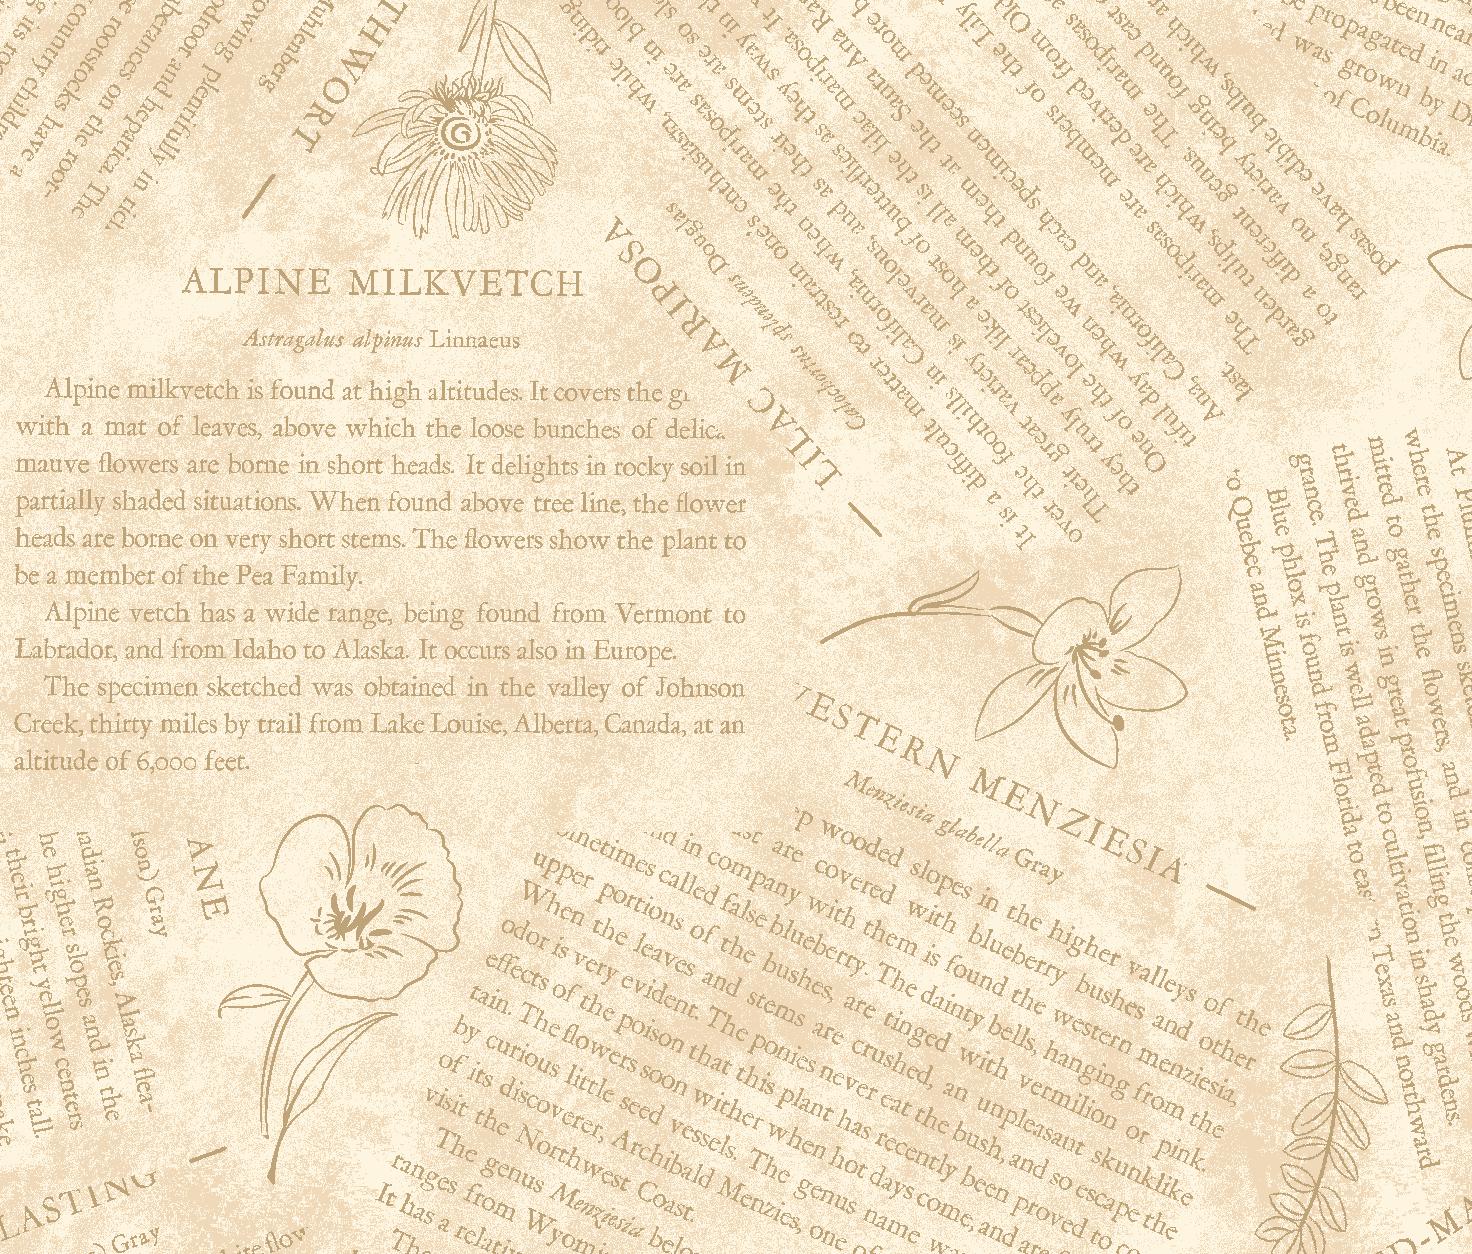 THWORT
Muhlenberg
rowing plentifully in rich
odroot and hepatica. The
berances on the root-
e rootstocks have a
country childr
ALPINE MILKVETCH
Astragalus alpinus Linnaeus
Alpine milkvetch is found at high altitudes. It covers the
with a mat of leaves, above which the loose bunches of
mauve flowers are borne in short heads. It delights in rocky soil in
partially shaded situations. When found above tree line, the flower
heads are borne on very short stems. The flowers show the plant to
be a member of the Pea Family.
Alpine vetch has a wide range, being found from Vermont to
Labrador, and from Idaho to Alaska. It occurs also in Europe.
The specimen sketched was obtained in the valley of Johnson
Creek, thirty miles by trail from Lake Louise, Alberta, Canada, at an
altitude of 6,000 feet.
LILAC MARIPOSA
Calochortus splendens Douglas
It is a difficult matter to restrain one's enthusiasm, while riding
over the foothills in California, when the mariposas are in bloo
Their great variety is marvelous, and as their stems are so sl
they truly appear like a host of butterflies as they sway in th
One of the loveliest of them all is the lilac mariposa. It
tiful day when we found them at the Santa Ana Ra
Ana, California, and each specimen seemed more b
last.
The mariposas are members of the Lily
garden tulips, which are derived from Old
to a different genus. The mariposas
range, no variety being found east
posas have edible bulbs, which
propagated in
was grown by D
of Columbia.
WESTERN MENZIESIA
Menziesia glabella Gray
wooded slopes in the higher valleys of the
are covered with blueberry bushes and other
and in company with them is found the western menziesia,
sometimes called false blueberry. The dainty bells, hanging from the
upper portions of the bushes, are tinged with vermilion or pink.
When the leaves and stems are crushed, an unpleasant skunklike
odor is very evident. The ponies never eat the bush, and so escape the
effects of the poison that this plant has recently been proved to co
tain. The flowers soon wither when hot days come, and are
by curious little seed vessels. The genus name wa
of its discoverer, Archibald Menzies, one of
visit the Northwest Coast.
The genus Menziesia belo
ranges from Wyomi
It has a relativ
The
At
where the specimens sket
mitted to gather the flowers, and in co
thrived and grows in great profusion, filling the woods
grance. The plant is well adapted to cultivation in shady gardens.
Blue phlox is found from Florida to Texas and northward
to Quebec and Minnesota.
ANE
son.) Gray
adian Rockies, Alaska flea-
he higher slopes and in the
their bright yellow centers
ighteen inches tall.
LASTING
) Gray
ite flow
D-MA